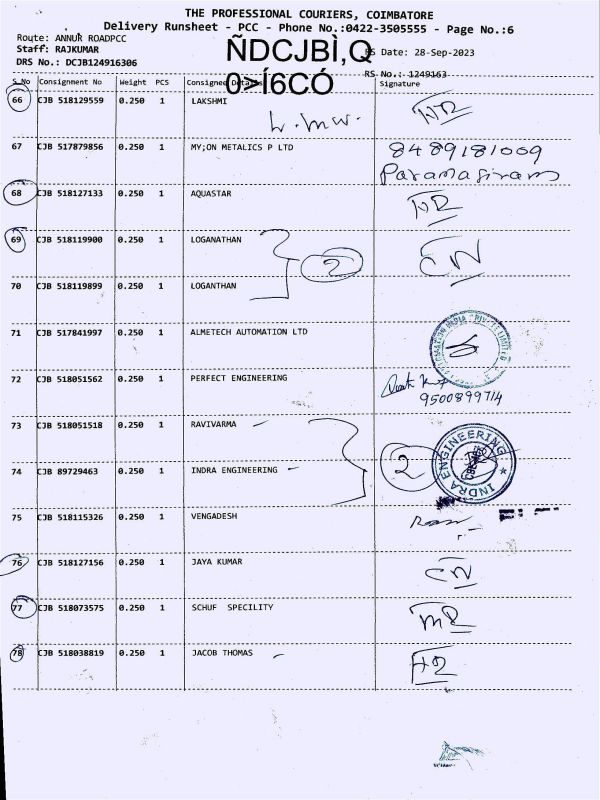 THE PROFESSIONAL COURIERS, COIMBATORE
Delivery Runsheet - PCC - Phone No.:0422-3505555 - Page No.:6
Route: ANNUR ROADPCC
Staff: RAJKUMAR
RS Date: 28-Sep-2023
DRS No.: DCJB124916306
RS No.: 1249163
ÑDCJBÌ,Q
0>Í6CÓ
S No Consignment No Weight PCS Consignee Details Signature
66 CJB 518129559 0.250 1 LAKSHMI
67 CJB 517879856 0.250 1 MY;ON METALICS P LTD 8489181009
Paramasivam
68 CJB 518127133 0.250 1 AQUASTAR
69 CJB 518119900 0.250 1 LOGANATHAN 2 CN
70 CJB 518119899 0.250 1 LOGANTHAN
71 CJB 517841997 0.250 1 ALMETECH AUTOMATION LTD
72 CJB 518051562 0.250 1 PERFECT ENGINEERING
9500899714
73 CJB 518051518 0.250 1 RAVIVARMA
74 CJB 89729463 0.250 1 INDRA ENGINEERING 2 INDRA ENGINEERING
75 CJB 518115326 0.250 1 VENGADESH
76 CJB 518127156 0.250 1 JAYA KUMAR CN
77 CJB 518073575 0.250 1 SCHUF SPECILITY
78 CJB 518038819 0.250 1 JACOB THOMAS